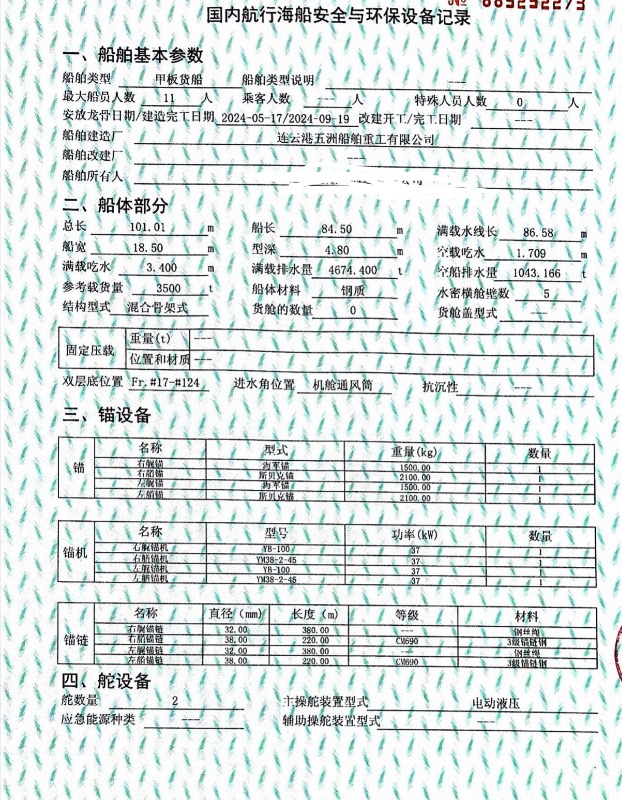 № 
国内航行海船安全与环保设备记录
一、船舶基本参数
船舶类型 甲板货船 船舶类型说明 ---
最大船员人数 11 人 乘客人数 --- 人 特殊人员人数 0 人
安放龙骨日期/建造完工日期 2024-05-17/2024-09-19 改建开工/完工日期 ---
船舶建造厂 连云港五洲船舶重工有限公司
船舶改建厂 ---
船舶所有人
二、船体部分
总长 101.01 m 船长 84.50 m 满载水线长 86.58 m
船宽 18.50 m 型深 4.80 m 空载吃水 1.709 m
满载吃水 3.400 m 满载排水量 4674.400 t 空船排水量 1043.166 t
参考载货量 3500 t 船体材料 钢质 水密横舱壁数 5
结构型式 混合骨架式 货舱的数量 0 货舱盖型式 ---
固定压载 重量(t) ---
位置和材质 ---
双层底位置 Fr.#17-#124 进水角位置 机舱通风筒 抗沉性 ---
三、锚设备
锚 名称 型式 重量(kg) 数量
右艉锚 海军锚 1500.00 1
右艏锚 斯贝克锚 2100.00 1
左艉锚 海军锚 1500.00 1
左艏锚 斯贝克锚 2100.00 1
锚机 名称 型号 功率(kW) 数量
右艉锚机 YB-100 37 1
右艏锚机 YM38-2-45 37 1
左艉锚机 YB-100 37 1
左艏锚机 YM38-2-45 37 1
锚链 名称 直径(mm) 长度(m) 等级 材料
右艉锚链 32.00 380.00 --- 钢丝绳
右艏锚链 38.00 220.00 CM690 3级锚链钢
左艉锚链 32.00 380.00 --- 钢丝绳
左艏锚链 38.00 220.00 CM690 3级锚链钢
四、舵设备
舵数量 2 主操舵装置型式 电动液压
应急能源种类 --- 辅助操舵装置型式 ---